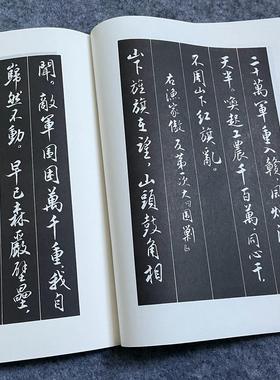 二十萬軍重入贛。風
天半。喚起工農千百萬,同心干
不周山下紅旗亂。
右漁家傲 反第一次大圍剿
山下旌旗在望,山頭鼓角相
聞。敵軍圍困萬千重,我自
巋然不動。早已森嚴壁壘,